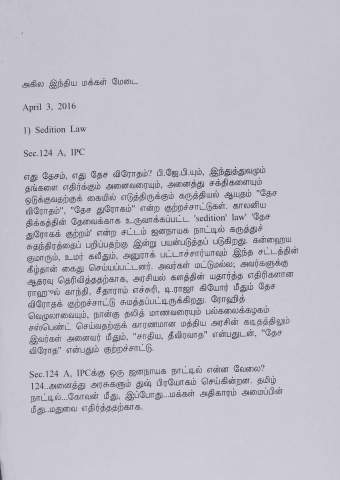 அகில இந்திய மக்கள் மேடை
April 3, 2016
1) Sedition Law
Sec.124 A, IPC
எது தேசம், எது தேச விரோதம்? பி.ஜே.பி.யும், இந்துத்துவமும்
தங்களை எதிர்க்கும் அனைவரையும், அனைத்து சக்திகளையும்
ஒடுக்குவதற்குக் கையில் எடுத்திருக்கும் கருத்தியல் ஆயுதம் "தேச
விரோதம்", "தேச துரோகம்" என்ற குற்றச்சாட்டுகள். காலனிய
திக்கத்தின் தேவைக்காக உருவாக்கப்பட்ட 'sedition law' 'தேச
துரோகக் குற்றம்' என்ற சட்டம் ஜனநாயக நாட்டில் கருத்துச்
சுதந்திரத்தைப் பறிப்பதற்கு இன்று பயன்படுத்தப் படுகிறது. கன்ஹைய
குமாரும், உமர் கலீதும், அனுராக் பட்டாச்சார்யாவும் இந்த சட்டத்தின்
கீழ்தான் கைது செய்யப்பட்டனர். அவர்கள் மட்டுமல்ல; அவர்களுக்கு
ஆதரவு தெரிவித்ததற்காக, அரசியல் களத்தின் யதார்த்த எதிரிகளான
ராஹுல் காந்தி, சீதாராம் எச்சூரி, டி.ராஜா கியோர் மீதும் தேச
விரோதக் குற்றச்சாட்டு சுமத்தப்பட்டிருக்கிறது. ரோஹித்
வெமுலாவையும், நான்கு தலித் மாணவரையும் பல்கலைக்கழகம்
சஸ்பெண்ட் செய்வதற்குக் காரணமான மத்திய அரசின் கடிதத்திலும்
இவர்கள் அனைவர் மீதும், "சாதிய, தீவிரவாத" என்பதுடன், "தேச
விரோத" என்பதும் குற்றச்சாட்டு.
Sec.124 A, IPCக்கு ஒரு ஜனநாயக நாட்டில் என்ன வேலை?
124..அனைத்து அரசுகளும் துஷ் பிரயோகம் செய்கின்றன. தமிழ்
நாட்டில்...கோவன் மீது, இப்போது...மக்கள் அதிகாரம் அமைப்பின்
மீது..மதுவை எதிர்த்ததற்காக.